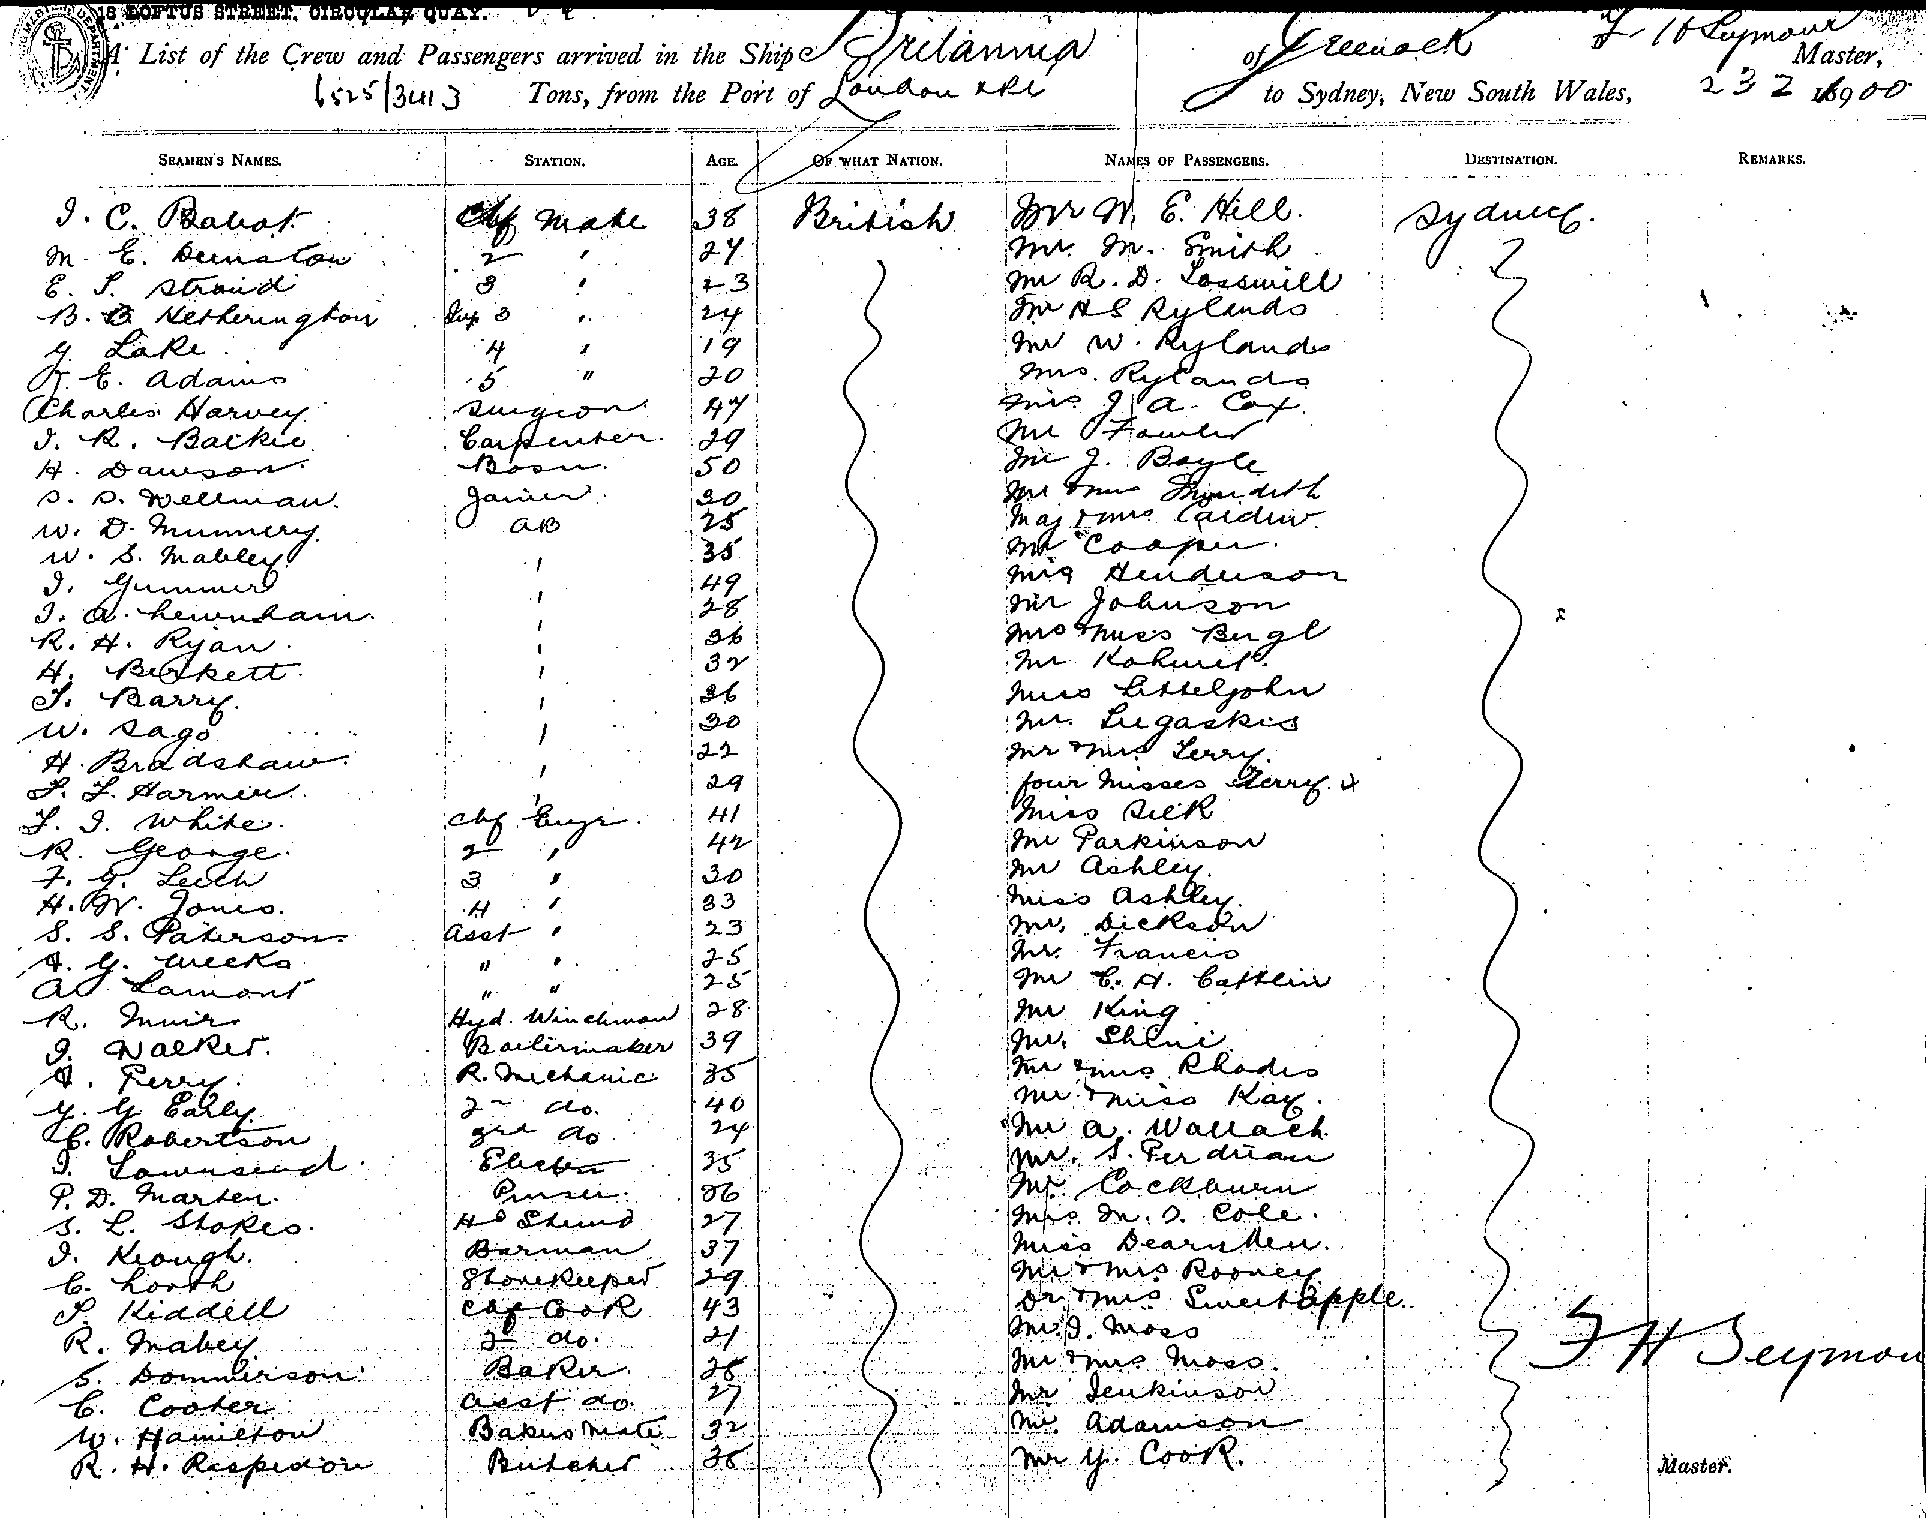 18 LOFTUS STREET, CIRCULAR QUAY.
A List of the Crew and Passengers arrived in the Ship Britannia of Greenock F H Seymour Master,
6525/3413 Tons, from the Port of London &c to Sydney, New South Wales, 23 2 1900
SEAMEN'S NAMES. STATION. AGE. OF WHAT NATION. NAMES OF PASSENGERS. DESTINATION. REMARKS.
I. C. Babot Chf Mate 38 British Mr W. E. Hill. Sydney.
M. E. 2 " 27 Mr. M. Smith
E. S. Stroud 3 " 23 Mr R. D.
B. B Hetherington Sup 3 " 24 Mr H S Rylands
G. Lake 4 " 19 Mr W. Rylands
E. Adams 5 " 20 Mrs. Rylands
Charles Harvey Surgeon 47 J. A. Cox
I. R. Backie Carpenter 29 Mr Fowler
H. Dawson Bosn. 50 Mr J. Boyle
S. S. Wellman. Joiner 30 Mr & Mrs
W. D. Munnery AB 25 Maj & Mrs
W. S. Mabley " 35 Mr Cooper.
I. Gummer " 49 Henderson
I. A. Lewnham " 28 Mr Johnson
R. H. Ryan " 36 Mrs & Miss Bugl
H. Birkett " 32 Mr
T. Barry. " 36 Miss Litteljohn
W. Sago " 30 Mr.
H. Bradshaw " 22 Mr & Mrs Terry.
Harmer " 29 four Misses Terry
White. Chf Engr. 41 Miss Silk
R. George 2 " 42 Mr Parkinson
F. G. Leech 3 " 30 Mr Ashley.
H. W. Jones. 4 " 33 Miss Ashley.
S. S. Paterson Asst " 23 Mr. Dickson
A. G. Weeks " " 25 Mr. Francis
A. Lamont " " 25 Mr C. H. Cattlin
R. Muir Hyd. Winchman 28 Mr King
I. Walker. Boilermaker 39 Mr.
A. Perry. R. Mechanic 35 Mr & Mrs Rhodes
G. G Early 2nd do. 40 Mr & Miss Kay.
C. Robertson 3rd do 24 Mr A. Wallach
I. Townsend 35 Mr. S. Perdriau
P. D. Marten. Purser. 36 Mr. Cockburn
S. L. Stokes. Hd Stewd 27 Mrs. M. S. Cole.
I. Keough. Barman 37 Miss Dearnden.
C. North Storekeeper 29 Mr & Mrs Rooney
Kiddell Chf Cook 43 Dr & Mrs Sweetapple
R. Mabey 2nd do. 21 Moss
S. Dommerson Baker. 26 Mr & Mrs Moss.
C. Cooter Asst do. 27 Mr Jenkinson
W. Hamilton Bakers Mate 32 Mr. Adamson
R. H. Rispedon Butcher 36 Mr G. Cook.
F H Seymour
Master.